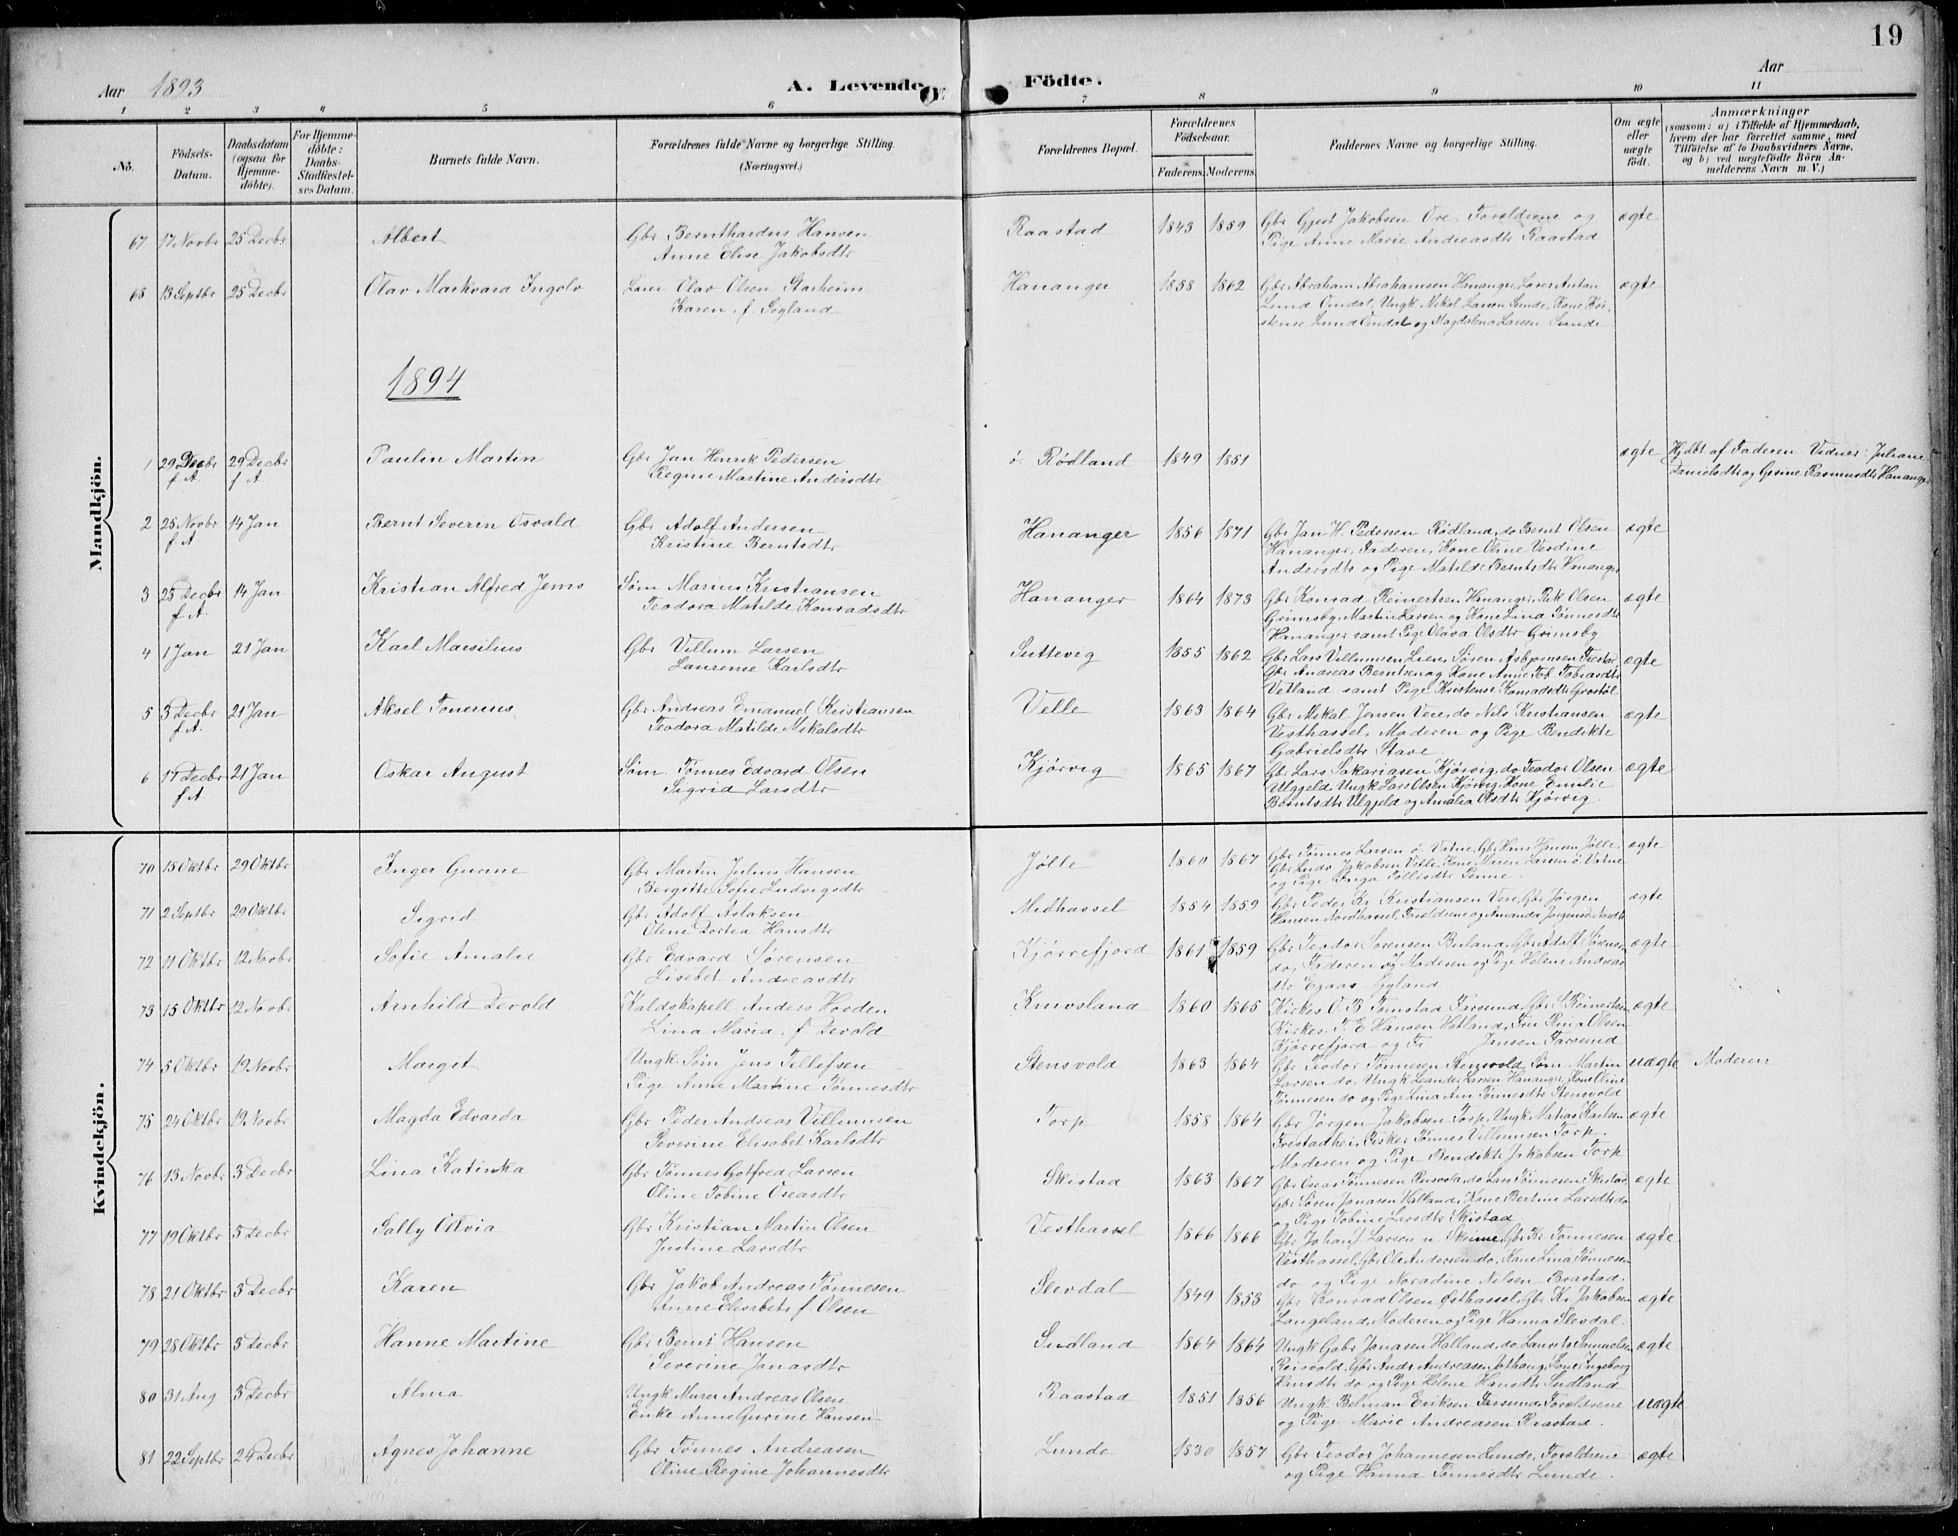 19
Aar 1893 A. Levende Födte. Aar
1 2 3 4 5 6 7 8 9 10 11
No. Födsels-Datum. Daabsdatum (ogsaa for Hjemme-döbte). For Hjemme-döbte: Daabs-Stadfæstel-ses Datum. Barnets fulde Navn. Forældrenes fulde Navne og borgerlige Stilling. (Næringsvei.) Forældrenes Bopæl. Forældrenes Födselsaar. Faderens. Moderens. Faddernes Navne og borgerlige Stilling. Om ægte eller uægte födt. Anmærkninger (saasom: a) i Tilfælde af Hjemmedaab, hvem der har forrettet samme, med Tilföielse af to Daabsvidners Navne, og b) ved uægtefödte Börn An-melderens Navn m. V.)
Mandkjön.
67 17 Novbr 25 Decbr Albert Gbr Bernthardus Hansen Raastad 1843 1859 Gbr Gjert Jakobsen Ore, Forældrene og ægte
Anne Elise Jakobsdtr Pige Anne Marie Andreasdtr Raastad
68 13 Septbr 25 Decbr Olav Markvard Ingolv Lærer Olav Olsen Starheim Hananger 1858 1862 Gbr Abraham Abrahamsen Hananger, Lærer Anton ægte
Karen, f. Sogland Lund Omdal, Ungk Mikal Larsen Lunde, Kone Kri-
stense Lund Omdal og Magdalena Larsen Lunde
1894
1 29 Decbr f A 29 Decbr f A Paulin Martin Gbr Jan Henrik Pedersen ö. Rødland 1849 1851 ægte Hjdbt af Faderen Vidner: Juliane
Regine Martine Andersdtr Danielsdtr og Gesine Rasmusdtr Hananger
2 25 Novbr f A. 14 Jan Bernt Severin Osvald Gbr Adolf Andersen Hananger 1856 1871 Gbr Jan H. Pedersen Rødland, do Bernt Olsen ægte
Kristine Berntsdtr Hananger, Faderen, Kone Oline Verdine
Andersdtr og Pige Matilde Berntsdtr Hananger
3 25 Decbr f A. 14 Jan Kristian Alfred Jens Søm Marius Kristiansen Hananger 1864 1873 Gbr Konrad Reinertsen Hananger, Rik Olsen ægte
Teodora Matilde Konradsdtr Grimsby, Martin Larsen og Kone Lina Tønnesdtr
Hananger samt Pige Olava Olsdtr Grimsby
4 1 Jan 21 Jan Karl Marsilius Gbr Villum Larsen Suttevig 1855 1862 Gbr Lars Villumsen Lien, Søren Asbjørnsen Frestad, ægte
Laurense Karlsdtr Gbr Andreas Berntsen og Kone Anne Tob. Tobiasdtr
Vetland samt Pige Kristense Konradsdtr Grostøl
5 3 Decbr f A. 21 Jan Aksel Tonerius Gbr Andreas Emanuel Kristiansen Velle 1863 1864 Gbr Mikal Jensen Vere, do Nils Kristiansen ægte
Teodora Matilde Mikalsdtr Vesthassel, Moderen og Pige Bendikte
Gabrielsdtr Stave.
6 17 Decbr f A 21 Jan Oskar August Søm. Tønnes Edvard Olsen Kjørvig 1865 1867 Gbr Lars Sakariasen Kjørvig, do Teodor Olsen ægte
Sigrid Larsdtr Ulgjeld, Ungk Lars Olsen Kjørvig, Kone Emilie
Berntsdtr Ulgjeld og Amalia Olsdtr Kjørvig.
Kvindekjön.
70 18 Oktbr 29 Oktbr Inger Gurine Gbr Martin Julius Hansen Jølle 1860 1867 Gbr Tønnes Larsen ö. Vatne, Gbr Hans Hansen Jølle, ægte
Bergitte Sofie Ludvigsdtr Gbr Ludv Jakobsen Velle, Kone Maren Larsen ö. Vatne
og Pige Inga Tollisdtr Penne.
71 2 Septbr 29 Oktbr Sigrid Gbr Adolf Aslaksen Midhassel 1854 1859 Gbr Peder Kr. Kristiansen Vere, Gbr Jørgen ægte
Olene Dortea Hansdtr Hansen Nordhassel, Forældrene og Amanda Jørgense Nordh.
72 11 Oktbr 12 Novbr Sofie Amalie Gbr Edvard Sørensen Kjørrefjord 1861 1859 Gbr Teodor Sørensen Buland, Gbr Adolf Sørensen ægte
Lisebet Andreasdtr do, Faderen og Moderen og Pige Helene Andreas
dtr Egaas Gyland
73 15 Oktbr 12 Novbr Arnhild Devold Kaldskapell Anders Hovden Knivsland 1860 1865 Kirkes. O. B. Tomstad Farsund, Gbr S. Reinertsen ægte
Lina Maria, f Devold Kirkes. T. E. Hansen Vetland, Frn Rina Olsen
Kjørrefjord og Fr Jansen Farsund
74 5 Oktbr 19 Novbr Margit Ungk. Søm Jens Tellefsen Stensvold 1863 1864 Gbr Teodor Tønnesen Stensvold, Søm. Martin uægte Moderen
Pige Anne Martine Tønnesdtr Larsen do, Ungk Leander Larsen Hananger, Kone Oline
Tønnesen do og Pige Lina Ann Tønnesdtr Stensvold
75 24 Oktbr 19 Novbr Magda Edvarda Gbr Peder Andreas Villumsen Torp 1858 1864 Gbr Jørgen Jakobsen Torp, Ungk. Matias Karlsen ægte
Severine Elisabet Karlsdtr Frestadhei, Fisker Tønnes Villumsen Torp.
Moderen og Pige Bendikte Jakobsen Tork
76 13 Novbr 3 Decbr Lina Katinka Gbr Tønnes Gotfred Larsen Skistad 1863 1867 Gbr Oseas Tønnesen Reisvold, do Lars Tønnesen Skistad, ægte
Oline Tobine Oseasdtr Gbr Søren Jonasen Halland, Kone Bertine Larsdtr do
og Pige Tobine Larsdtr Skistad
77 19 Oktbr 3 Decbr Sally Olivia Gbr Kristian Martin Olsen Vesthassel 1866 1866 Gbr Johan J Larsen n. Skeime, Gbr Kr Tønnesen ægte
Justine Larsdtr Vesthassel, Gbr Ole Andersen do, Kone Lina Tønnesen
do og Pige Noradine Nilsen Brastad.
78 21 Oktbr 3 Decbr Karen Gbr Jakob Andreas Tønnesen Slevdal 1849 1853 Gbr Konrad Olsen Østhassel, Gbr Kr. Jakobsen ægte
Anne Elisabet f. Olsen Langeland, Moderen og Pige Hanna Slevdal.
79 28 Oktbr 3 Decbr Hanne Martine Gbr Bernt Hansen Sudland 1864 1864 Ungk Gabr Jonasen Halland, do Laurits Samuelsen ægte
Severine Jonasdtr Reisvold, Gbr Andr Andreasen Østhang, Kone Ingeborg
do og Pige Helene Hansdtr Sudland
80 31 Aug 3 Decbr Alma Ungk Murer Andreas Olsen Raastad 1851 1856 Ungk. Belman Eriksen Farsund, Forældrene uægte
Enke Anne Gurine Hansen og Pige Marie Andreasen Raastad.
81 22 Septbr 24 Decbr Agnes Johanne Gbr Tønnes Andreasen Lunde 1830 1857 Gbr Teodor Johannesen Lunde, Forældrene ægte
Oline Regine Johannesdtr og Pige Hanna Tønnesdtr Lunde.